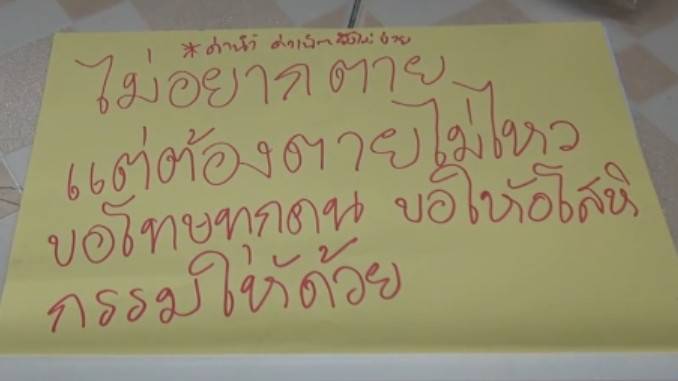 *ค่าน้ำ
ไม่อยากตาย
แต่ต้องตายไม่ไหว
ขอโทษทุกคน ขอให้อโสหิ
กรรมให้ด้วย